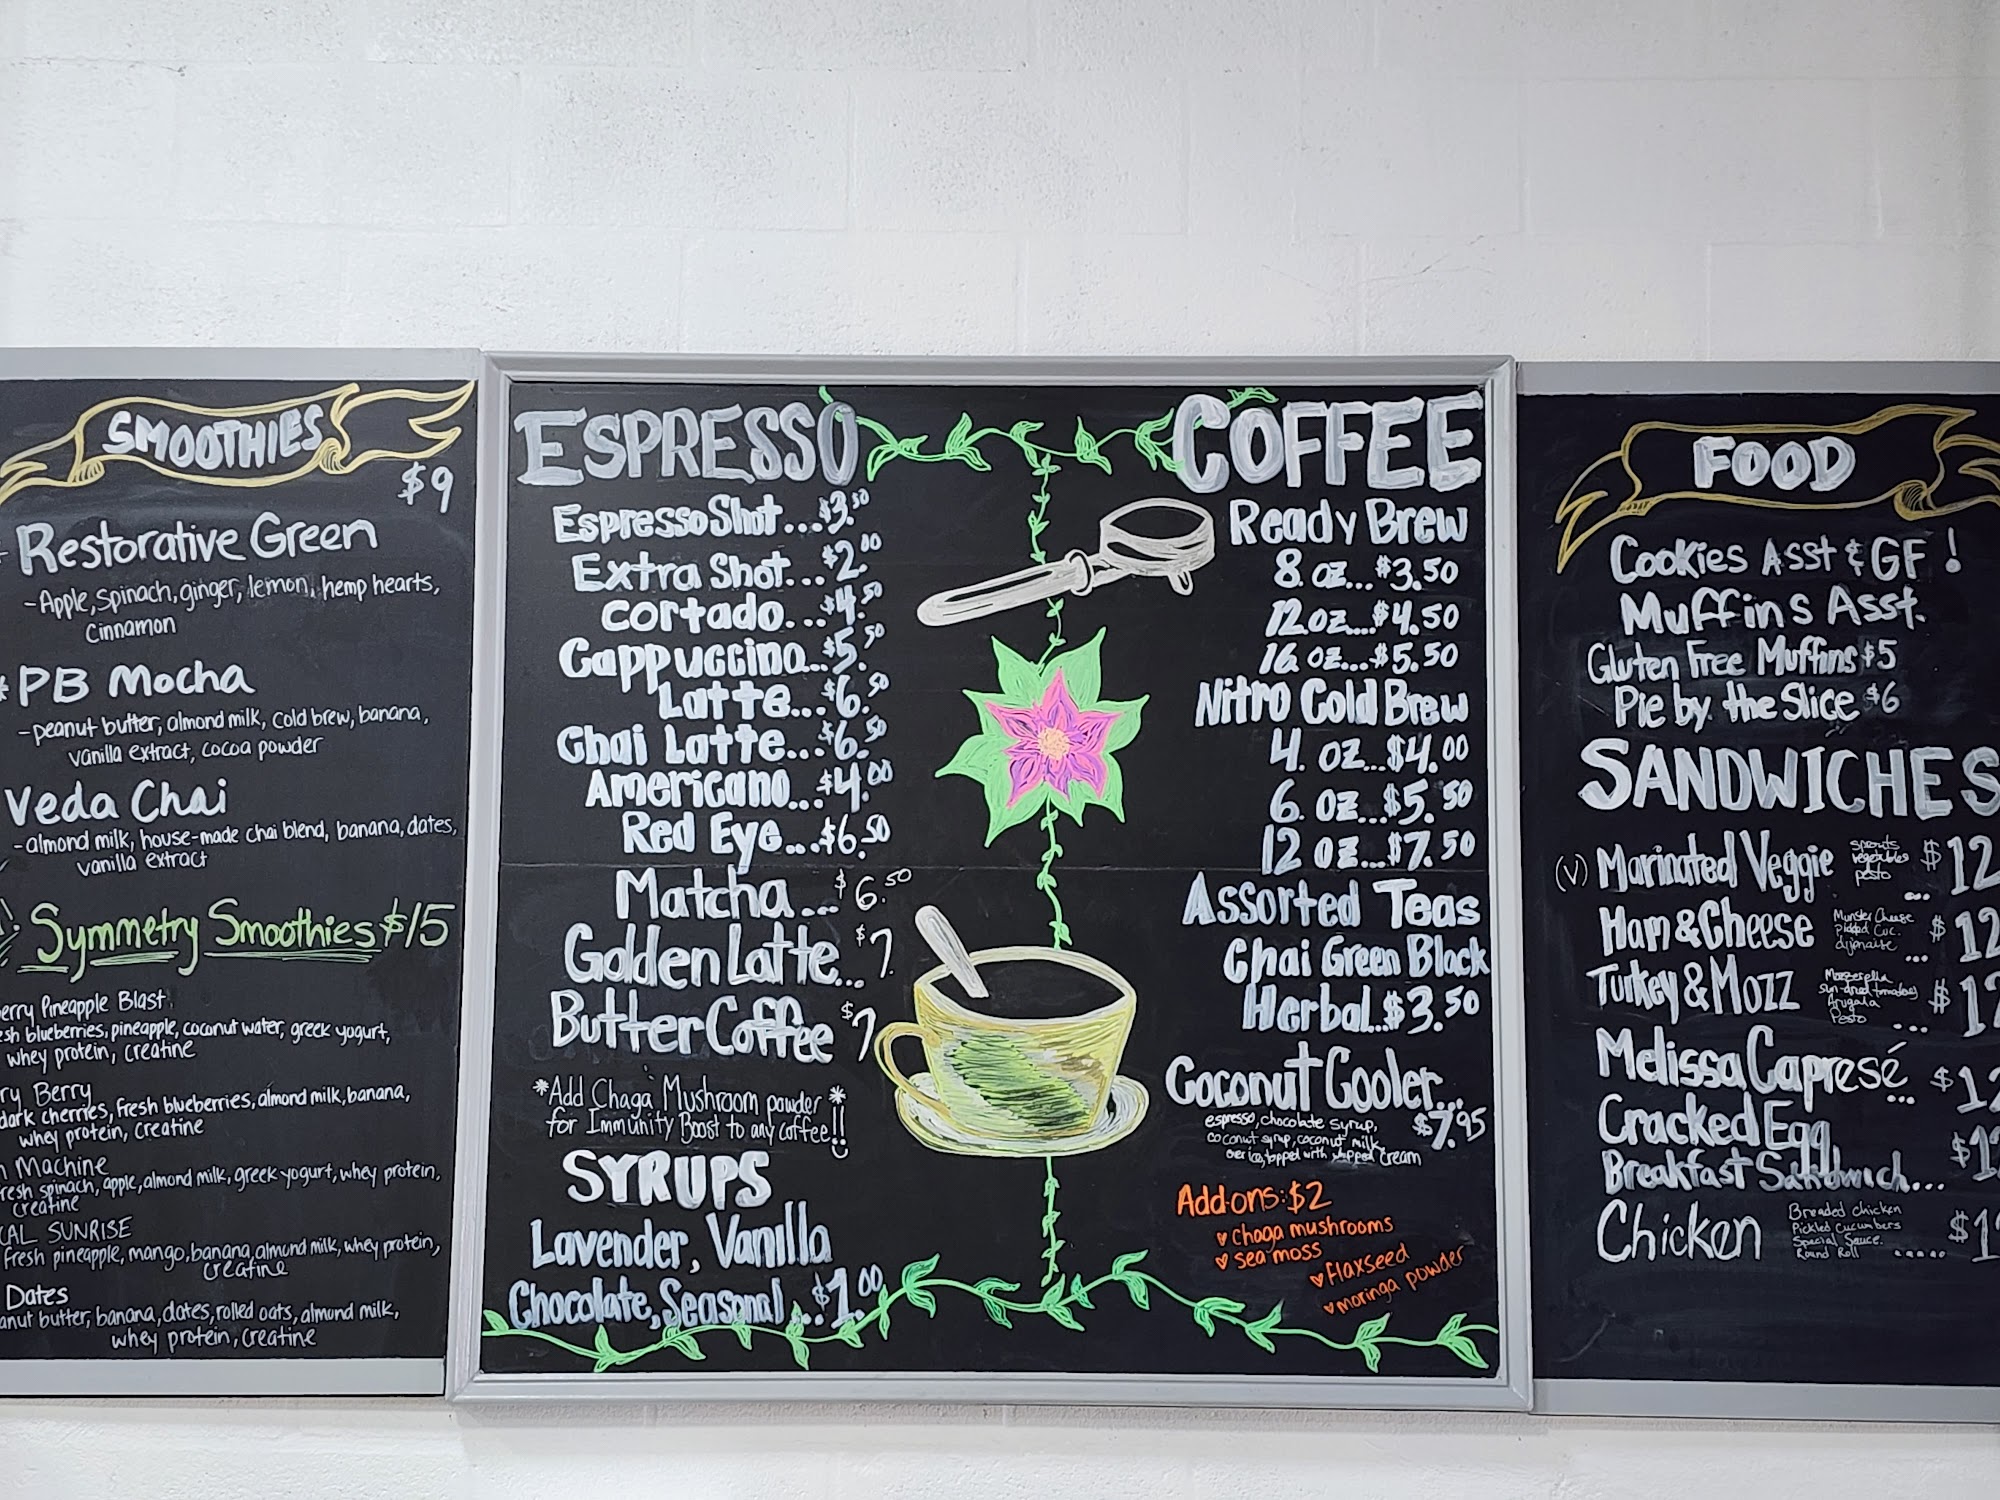 SMOOTHIES
$9
Restorative Green
-Apple, spinach, ginger, lemon, hemp hearts,
cinnamon
*PB Mocha
-peanut butter, almond milk, cold brew, banana,
vanilla extract, cocoa powder
Veda Chai
-almond milk, house-made chai blend, banana, dates,
vanilla extract
Symmetry Smoothies $15
Pineapple Blast
blueberries, pineapple, coconut water, greek yogurt,
whey protein, creatine
Berry
dark cherries, fresh blueberries, almond milk, banana,
whey protein, creatine
Machine
spinach, apple, almond milk, greek yogurt, whey protein,
creatine
SUNRISE
fresh pineapple, mango, banana, almond milk, whey protein,
creatine
Dates
butter, banana, dates, rolled oats, almond milk,
whey protein, creatine
ESPRESSO
Espresso Shot...$3.50
Extra Shot...$2.00
Cortado...$4.50
Cappuccino...$5.50
Latte...$6.50
Chai Latte...$6.50
Americano...$4.00
Red Eye...$6.50
Matcha...$6.50
Golden Latte...$7.
Butter Coffee $7
*Add Chaga Mushroom powder*
for Immunity Boost to any coffee!!
SYRUPS
Lavender, Vanilla
Chocolate, Seasonal...$1.00
COFFEE
Ready Brew
8 oz...$3.50
12 oz...$4.50
16 oz...$5.50
Nitro Cold Brew
4. oz...$4.00
6. oz...$5.50
12 oz...$7.50
Assorted Teas
Chai Green Black
Herbal..$3.50
Coconut Cooler...
$7.95
espresso, chocolate syrup,
coconut syrup, coconut milk,
over ice, topped with whipped cream
Add-ons: $2
chaga mushrooms
sea moss
flaxseed
moringa powder
FOOD
Cookies Asst & GF!
Muffins Asst.
Gluten Free Muffins $5
Pie by the Slice $6
SANDWICHES
(V) Marinated Veggie sprouts vegetables pesto ... $12
Ham & Cheese Munster Cheese pickled cuc. dijonaise ... $12
Turkey & Mozz Mozzerella sun-dried tomatoes Arugala Pesto ... $12
Melissa Capresé ... $12
Cracked Egg
Breakfast Sandwich... $12
Chicken Breaded chicken Pickled Cucumbers Special Sauce. Round Roll ..... $1